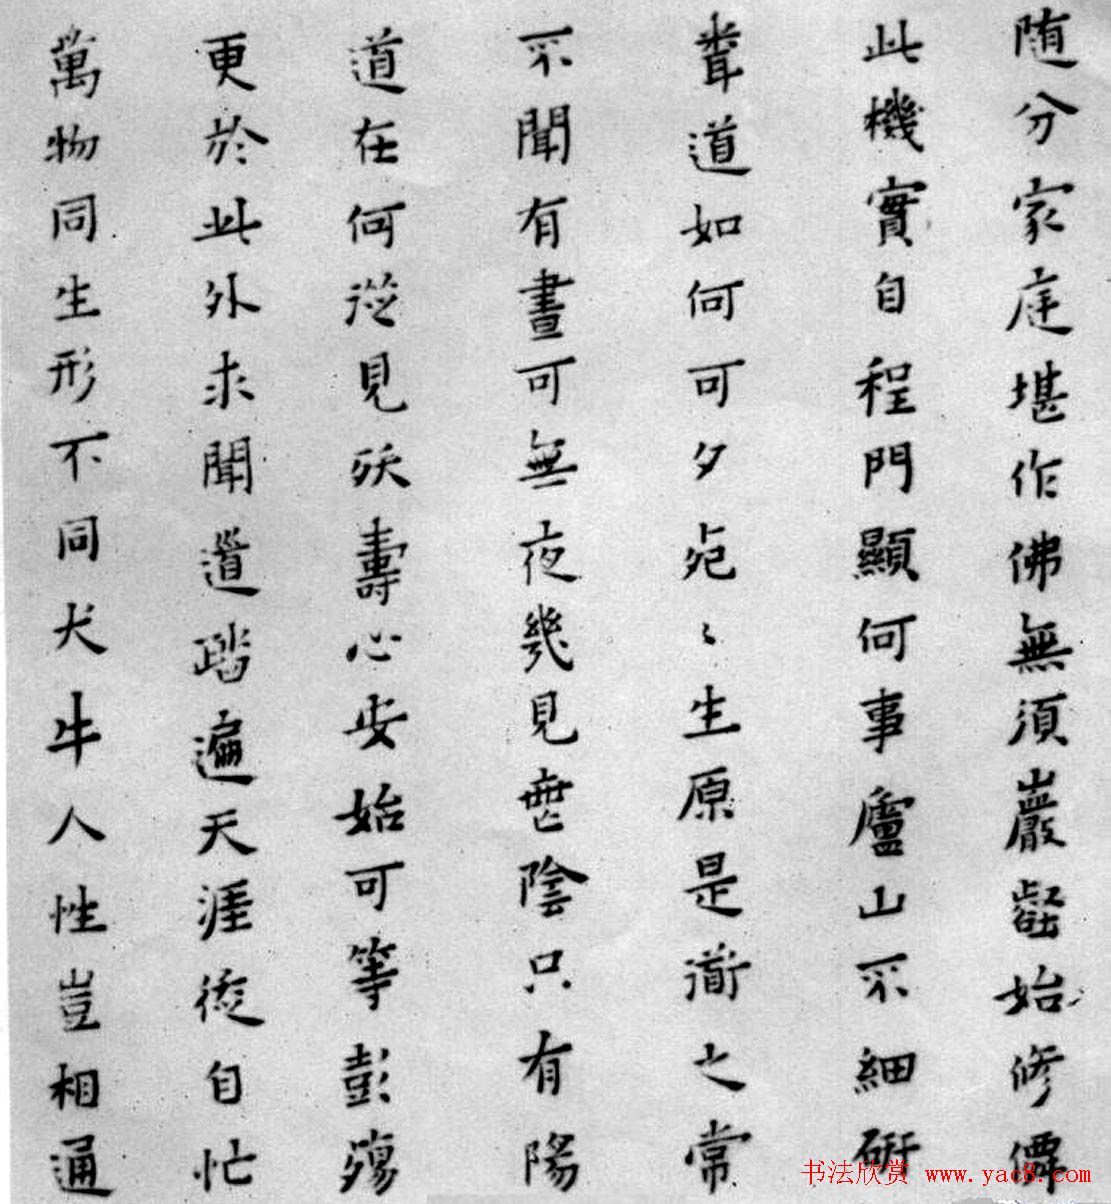 随分家庭堪作佛無須巖壑始修僊
此機實自程門顯何事廬山不細研
道如何可夕死〻生原是衜之常
不聞有晝可無夜幾見無陰只有陽
道在何從見殀壽心安始可等彭殤
更於此外求聞道踏遍天涯徒自忙
萬物同生形不同犬牛人性豈相通
书法欣赏 www.yac8.com